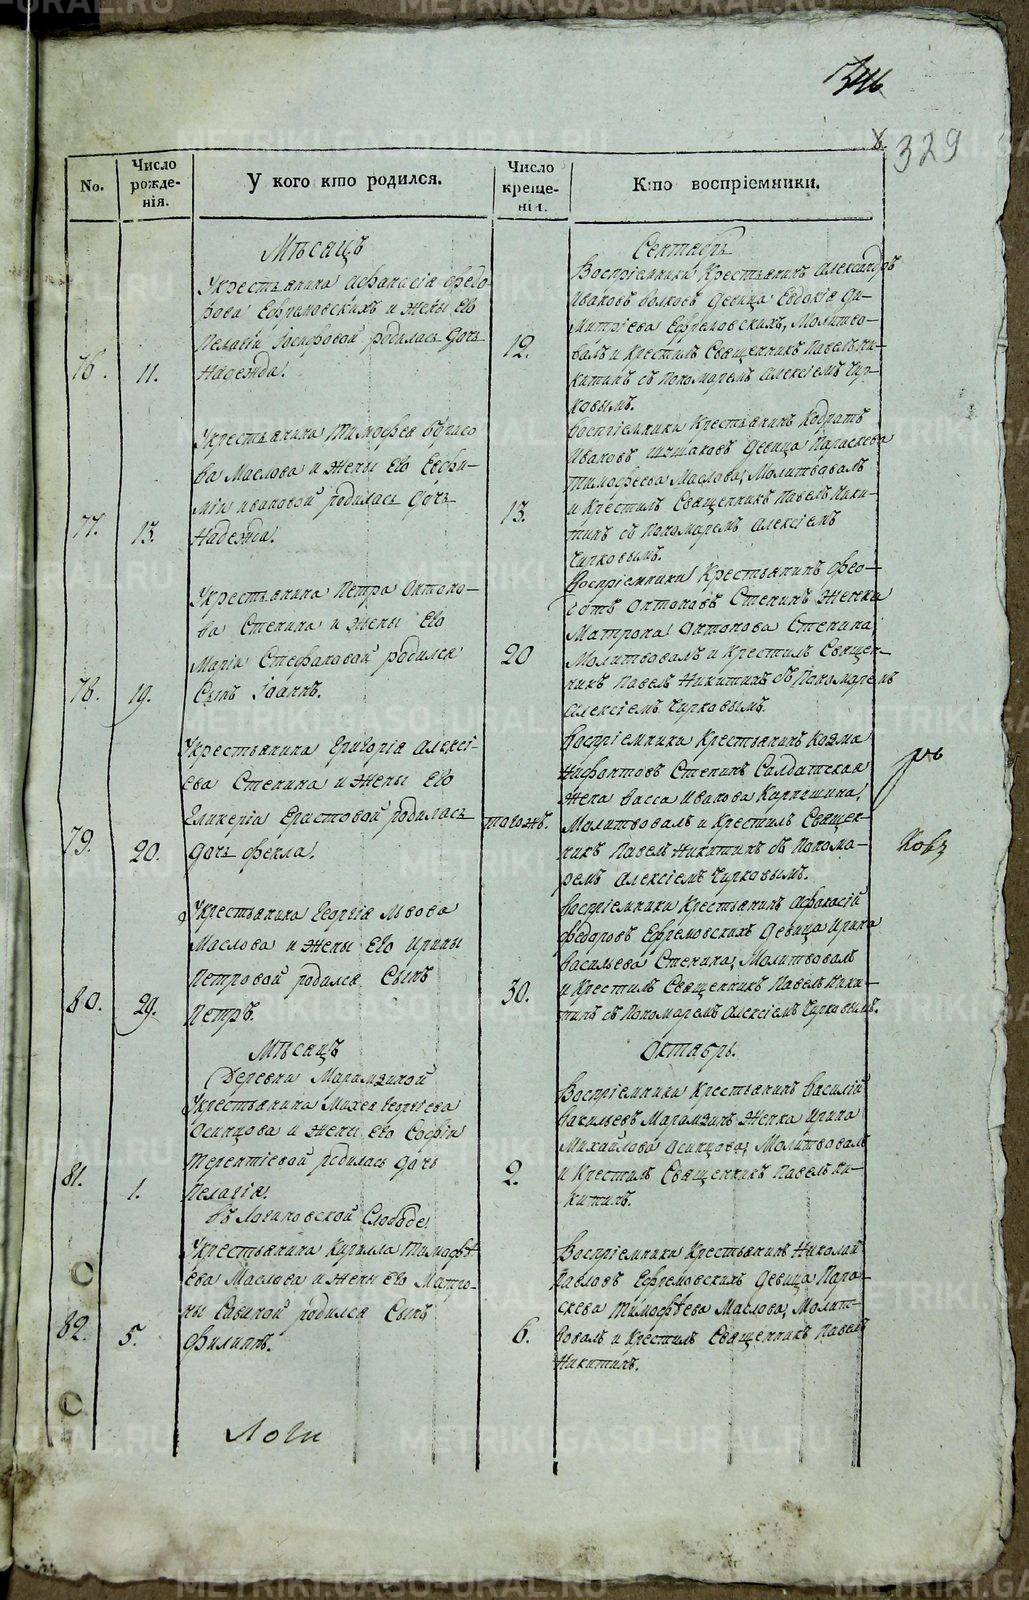 346
329
No.
Число рожденія.
У кого кто родился.
Число крещенія.
Кто воспріемники.
Мѣсяцъ
Сентябрь
76.
11.
Укрестьянина Афанасія Федо-
рова Ефремовскихъ и жены его
Пелагіи Іосифовой родилась дочь
Надежда.
12.
Воспріемники Крестьянинъ Александръ
Ивановъ Волковъ девица Евдокія Ди-
митріева Ефремовскихъ, Молитво-
валъ и Крестилъ Священникъ Павелъ Ни-
китинъ съ Пономаремъ Алексіемъ Чир-
ковымъ.
77.
13.
Укрестьянина Тимофея Борисо
ва Маслова и жены его Евфи-
міи Ивановой родилась дочь
Надежда.
13.
Воспріемники Крестьянинъ Кодратъ
Ивановъ девица Параскева
Тимофеева Маслова; Молитвовалъ
и Крестилъ Священникъ Павелъ Ники-
тинъ съ Пономаремъ Алексіемъ
Чирковымъ.
78.
19.
Укрестьянина Петра Антоно-
ва Стенина и жены его
Маріи Стефановой родился
Сынъ Іоаннъ.
20
Воспріемники Крестьянинъ Фео-
Антоновъ Стенинъ Женка
Матрона Антонова Стенина;
Молитвовалъ и Крестилъ Священ-
никъ Павелъ Никитинъ съ Пономаремъ
Алексіемъ Чирковымъ.
79.
20.
Укрестьянина Григорія Алексі-
ева Стенина и жены его
Гликеріи Ерастовой родилась
дочь Фекла.
тогожъ.
Воспріемники Крестьянинъ Козма
Нифонтовъ Стенинъ Салдатская
жена Васса Иванова
Молитвовалъ и Крестилъ Священ-
никъ Павелъ Никитинъ съ Понома-
ремъ Алексіемъ Чирковымъ.
80.
29.
Укрестьянина Георгія Львова
Маслова и жены его Ирины
Петровой родился Сынъ
Петръ.
30.
Воспріемники Крестьянинъ Афанасій
Федоровъ Ефремовскихъ девица Ирина
Васильева Стенина; Молитвовалъ
и Крестилъ Священникъ Павелъ Ники-
тинъ съ Пономаремъ Алексіемъ Чирковымъ.
Мѣсяцъ
Октябрь.
Деревни Марамзиной
81.
1.
Укрестьянина Михея Георгіева
Осинцова и жены его Софіи
Терентіевой родилась дочь
Пелагія.
2.
Воспріемники Крестьянинъ Василій
Васильевъ Марамзинъ Женка Ирина
Михайлова Осинцова; Молитвовалъ
и Крестилъ Священникъ Павелъ Ни-
китинъ.
въ Логиновской Слободе
82.
5.
Укрестьянина Кирилла Тимофѣ-
ева Маслова и жены его Матро-
ны Савиной родился Сынъ
Филиппъ.
6.
Воспріемники Крестьянинъ Николай
Павловъ Ефремовскихъ девица Пара-
скева Тимофѣева Маслова, Молит-
вовалъ и Крестилъ Священникъ Павелъ
Никитинъ.
Логи
METRIKI.GASO-URAL.RU